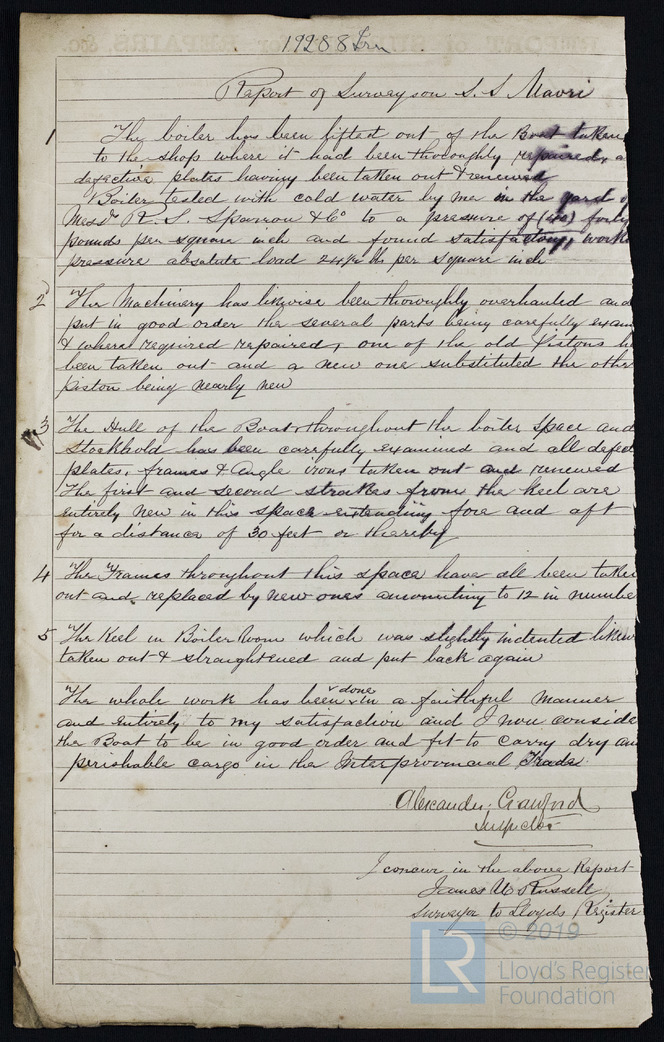 19288 Irn
Report of Survey on S.S. Maori
1 The boiler has been lifted out of the Boat taken
to the shop where it had been thoroughly repaired, a
defective plates having been taken out & renewed
Boiler tested with cold water by me in the yard o
Messrs R. S. Sparrow & Co to a pressure of (40) forty
pounds per square inch and found satisfactory, work
pressure absolute load 24½ lbs per square inch
2 The Machinery has likewise been thoroughly overhauled and
put in good order the several parts being carefully exam
& where required repaired, one of the old Pistons h
been taken out and a new one substituted the other
piston being nearly new
3 The Hull of the Boat throughout the boiler space and
Stockhold has been carefully examined and all defect
plates, frames & Angle irons taken out and renewed
The first and second strakes from the keel are
entirely new in this space extending fore and aft
for a distance of 30 feet or thereby
4 The Frames throughout this space have all been taken
out and replaced by new ones amounting to 12 in numbe
5 The Keel in Boiler Room which was slightly indented likew
taken out & straightened and put back again
The whole work has been done in a faithful manner
and entirely to my satisfaction and I now conside
the Boat to be in good order and fit to carry dry an
perishable cargo in the Interprovincial Trade
Alexander Crawford
Inspector
I concur in the above Report
James Russell
Surveyor to Lloyds Register
© 2019
LR Lloyd's Register
Foundation